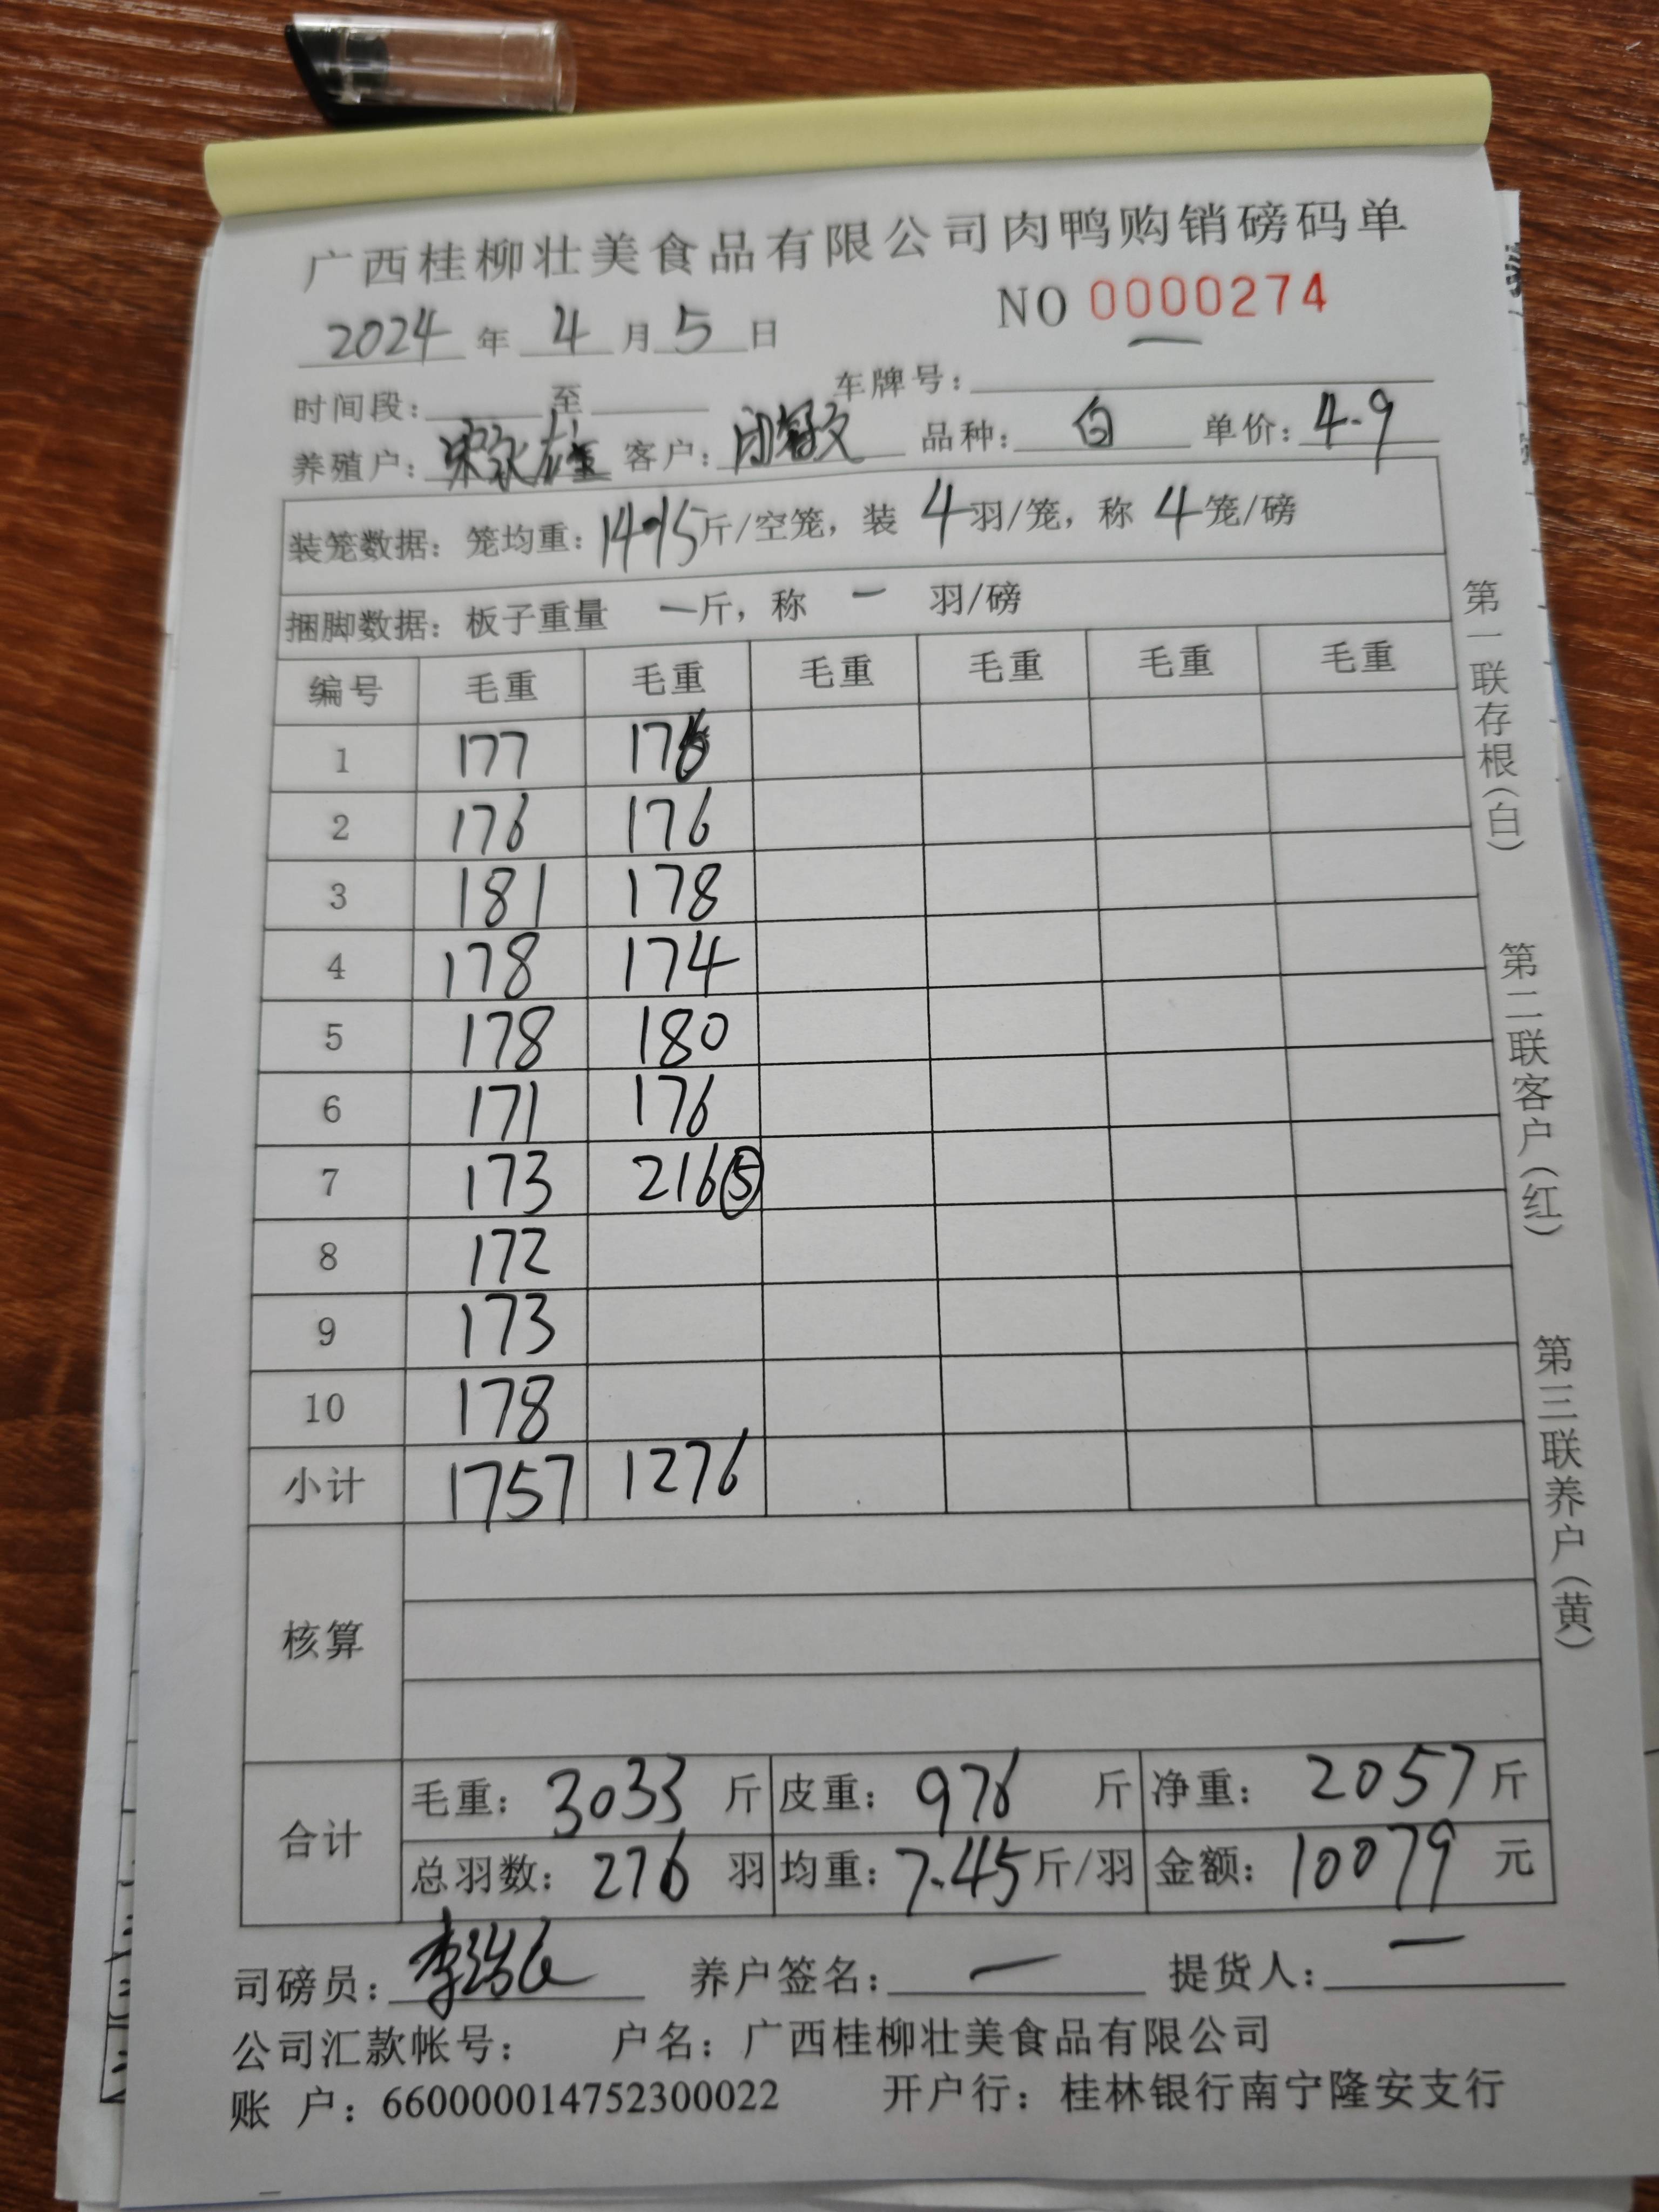 广西桂柳壮美食品有限公司肉鸭购销磅码单
2024 年 4 月 5 日 NO 0000274
时间段： 至 车牌号： 一
养殖户： 宋永雄 客户： 闭 文 品种： 白 单价： 4.9
装笼数据：笼均重：14.15斤/空笼，装 4 羽/笼，称 4 笼/磅
捆脚数据：板子重量 一斤，称 一 羽/磅
编号 毛重 毛重 毛重 毛重 毛重 毛重
1 177 176
2 176 176
3 181 178
4 178 174
5 178 180
6 171 176
7 173 216⑤
8 172
9 173
10 178
小计 1757 1276
核算
合计
毛重： 3033 斤 皮重： 976 斤 净重： 2057 斤
总羽数： 276 羽 均重：7.45斤/羽 金额： 10079 元
司磅员： 李 养户签名： 一 提货人： 一
公司汇款帐号： 户名：广西桂柳壮美食品有限公司
账 户：660000014752300022 开户行：桂林银行南宁隆安支行
第一联存根(白) 第二联客户(红) 第三联养户(黄)